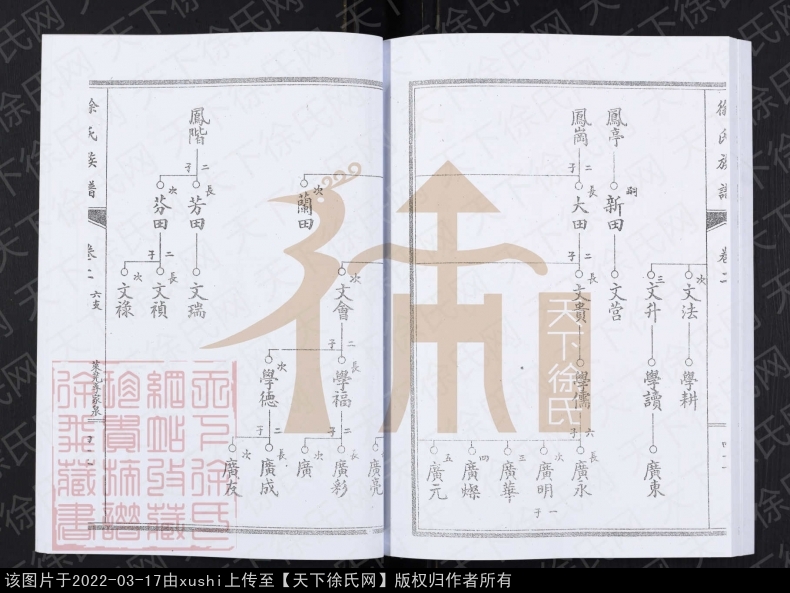 徐氏族譜
卷二
次 文法
學耕
三 文升
學讀
廣東
鳳亭
嗣 新田
文宫
鳳崗
二子
長 大田
二子
長 文貴
學儒
六子
長 廣永
次 廣明
三 廣華
四 廣燦
五 廣元
一子
次 蘭田
次 文會
二子
長 學福
二子
長 廣彩
次 廣
廣亮
次 學德
二子
長 廣成
次 廣友
鳳階
二子
長 芳田
文瑞
次 芬田
二子
長 文禎
次 文祿
徐氏族譜
卷二 六支
徐
天下徐氏
天下徐氏网
该图片于2022-03-17由xushi上传至【天下徐氏网】版权归作者所有